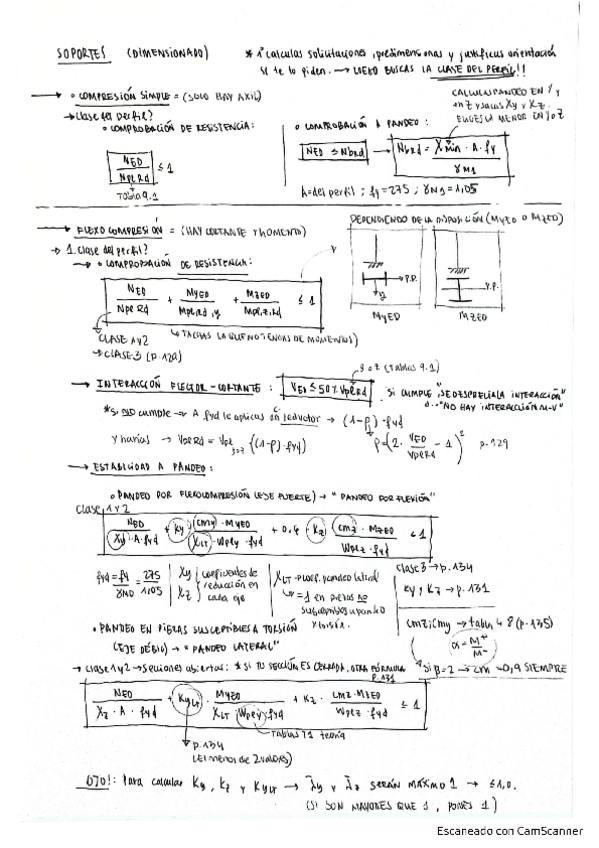 SOPORTES (DIMENSIONADO)
* 1º calculas solicitaciones, predimensionas y justificas orientación
si te lo piden. → LUEGO BUSCAS LA CLASE DEL PERFIL!!
→ • COMPRESIÓN SIMPLE = (SOLO HAY AXIL)
→ clase del perfil?
• COMPROBACIÓN DE RESISTENCIA:
NED / NplRd ≤ 1
Tabla 9.1
• COMPROBACIÓN A PANDEO:
CALCULAS PANDEO EN Y y
en Z y sacas Xy y Xz.
ELIGES LA MENOR EN Y o Z
NED ≤ NbRd → NbRd = Xmin · A · fy / γM1
A = del perfil ; fy = 275 ; γM1 = 1,05
→ FLEXOCOMPRESIÓN = (HAY CORTANTE Y MOMENTO)
DEPENDIENDO DE LA DISPOSICIÓN (MyED o MzED)
→ 1. Clase del perfil?
→ • COMPROBACIÓN DE RESISTENCIA:
NED / NplRd + MyED / MplRd,y + MzED / MplRd,z ≤ 1
P.P.
P.P.
MyED
MzED
CLASE 1 y 2
→ CLASE 3 (P. 129)
↳ TACHAS LA QUE NO TENGAS DE MOMENTOS)
→ INTERACCIÓN FLECTOR-CORTANTE: VED ≤ 50% VplRd
y o z (Tablas 9.1)
SI CUMPLE "SE DESPRECIA LA INTERACCIÓN"
o "NO HAY INTERACCIÓN M-V"
* Si NO cumple → A fyd le aplicas un reductor → (1-ρ) · fyd
y harías → VplRd = Vpl y o z ((1-ρ) · fyd)
ρ = (2 · VED / VplRd - 1)² p. 129
→ ESTABILIDAD A PANDEO:
• PANDEO POR FLEXOCOMPRESIÓN (EJE FUERTE) → "PANDEO POR FLEXIÓN"
Clase 1 y 2
NED / Xy · A · fyd + Ky · cmy · MyED / XLT · Wply · fyd + 0,6 · Kz · cmz · MzED / Wplz · fyd ≤ 1
fyd = fy / γM0 = 275 / 1,05
Xy Xz coeficientes de
reducción en
cada eje
XLT → coef. pandeo lateral
↳ = 1 en piezas no
susceptibles a pandeo
y torsión.
clase 3 → p. 134
Ky, Kz → p. 131
cmz; cmy → tabla 4.8 (p. 135)
• PANDEO EN PIEZAS SUSCEPTIBLES A TORSIÓN
(EJE DÉBIL) → "PANDEO LATERAL"
* Si β = 2 → cm = 0,9 SIEMPRE
→ Clase 1 y 2 → Secciones abiertas: * SI TU SECCIÓN ES CERRADA, OTRA FÓRMULA
P. 131
NED / Xz · A · fyd + KyLT · MyED / XLT · Wply · fyd + Kz · cmz · MzED / Wplz · fyd ≤ 1
p. 134
(El menos de 2 valores)
Tablas T1 teoría
OJO!: Para calcular Ky, Kz y KyLT → λy y λz SERÁN MÁXIMO 1 → ≤ 1,0.
(SI SON MAYORES QUE 1, PONES 1)
Escaneado con CamScanner